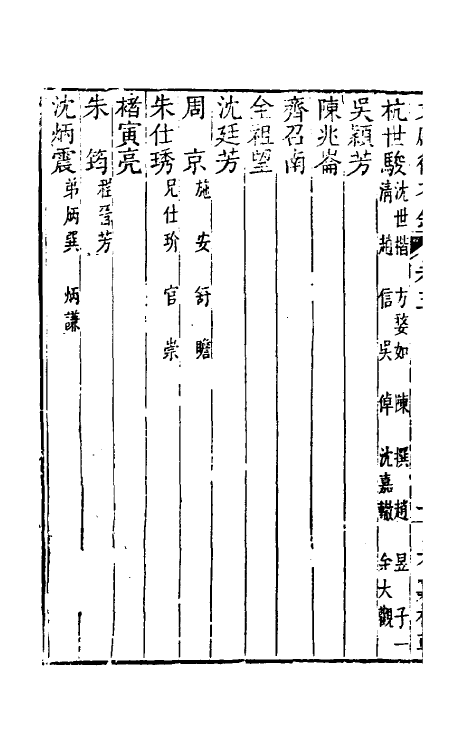 杭世駿 沈世楷 方婺如 陳撰 趙昱 子一
清 趙信 吳焯 沈嘉轍 余大觀
吳穎芳
陳兆崙
齊召南
全祖望
沈廷芳
周京 施安 舒瞻
朱仕琇 兄仕玠 官崇
褚寅亮
朱筠 程晉芳
沈炳震 弟炳巽 炳謙